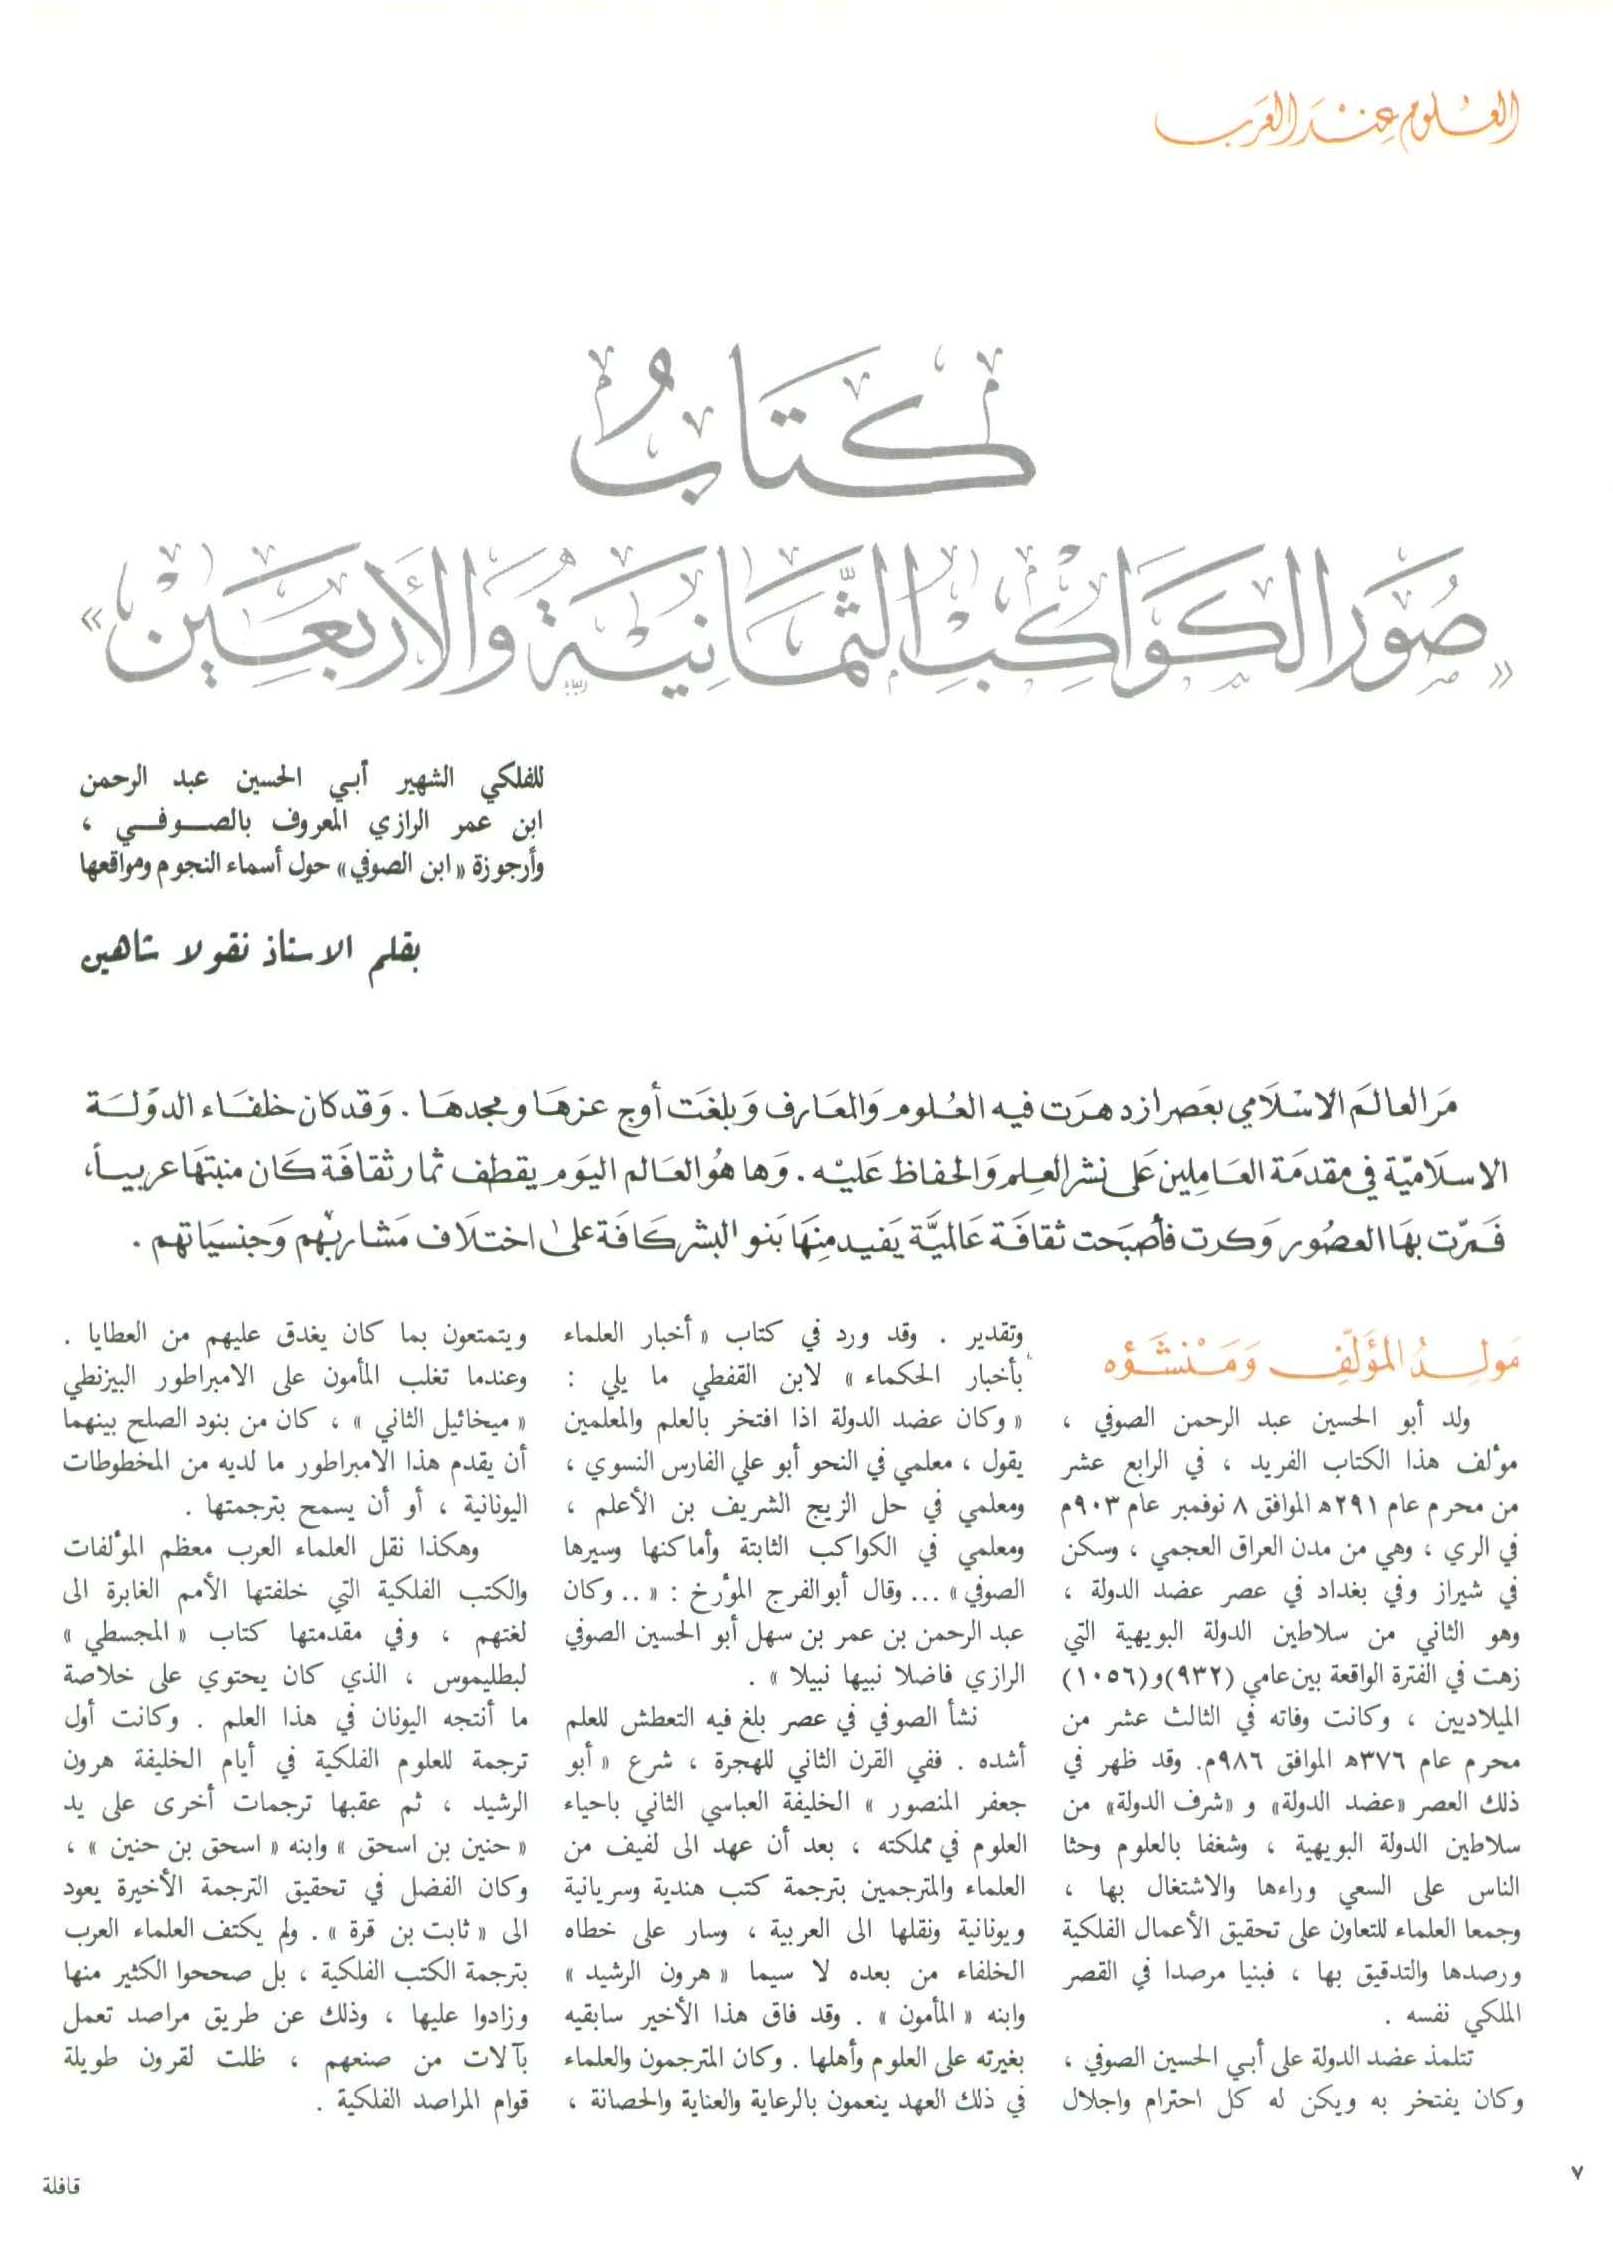 العلوم عند العرب
كتاب
« صور الكواكب الثمانية والأربعين »
للفلكي الشهير أبي الحسين عبد الرحمن
ابن عمر الرازي المعروف بالصوفي ،
وأرجوزة « ابن الصوفي» حول أسماء النجوم ومواقعها
بقلم الاستاذ نقولا شاهين
مَر العالَم الاسْلَامي بعَصر ازدهرَت فيه العُلوم وَالمعَارف وَبلغَت أوج عزهَا ومجدهَا . وَقد كان خلفَاء الدوْلَة
الاسلَاميّة في مقدمَة العَامِلين عَلى نشر العِلم وَالحفاظ عَليْه . وَها هوُ العالم اليوَم يقطف ثمار ثقافَة كَان منبتهَا عربيـاً،
فَمرّت بهَا العصُور وَكرت فأصبَحت ثقافَة عَالميَّة يَفيد منِهَا بَنو البشر كَافَة علىٰ اختلَاف مَشاربهْم وَجنسيَاتهم .
مَولِدُ المؤلّفِ وَمَنْشَؤه
ولد أبو الحسين عبد الرحمن الصوفي ،
مؤلف هذا الكتاب الفريد ، في الرابع عشر
من محرم عام ٢٩١ه الموافق ٨ نوفمبر عام ٩٠٣م
في الري ، وهي من مدن العراق العجمي ، وسكن
في شيراز وفي بغداد في عصر عضد الدولة ،
وهو الثاني من سلاطين الدولة البويهية التي
زهت في الفترة الواقعة بين عامي (٩٣٢) و(١٠٥٦)
الميلاديين ، وكانت وفاته في الثالث عشر من
محرم عام ٣٧٦ه الموافق ٩٨٦م. وقد ظهر في
ذلك العصر «عضد الدولة» و «شرف الدولة» من
سلاطين الدولة البويهية ، وشغفا بالعلوم وحثا
الناس على السعي وراءها والاشتغال بها ،
وجمعا العلماء للتعاون على تحقيق الأعمال الفلكية
ورصدها والتدقيق بها ، فبنيا مرصدا في القصر
الملكي نفسه .
تتلمذ عضد الدولة على أبي الحسين الصوفي ،
وكان يفتخر به ويكن له كل احترام واجلال
وتقدير . وقد ورد في كتاب « أخبار العلماء
بأخبار الحكماء » لابن القفطي ما يلي :
« وكان عضد الدولة اذا افتخر بالعلم والمعلمين
يقول ، معلمي في النحو أبو علي الفارس النسوي ،
ومعلمي في حل الزيج الشريف بن الأعلم ،
ومعلمي في الكواكب الثابتة وأماكنها وسيرها
الصوفي» ... وقال أبو الفرج المؤرخ : « .. وكان
عبد الرحمن بن عمر بن سهل أبو الحسين الصوفي
الرازي فاضلا نبيها نبيلا » .
نشأ الصوفي في عصر بلغ فيه التعطش للعلم
أشده . ففي القرن الثاني للهجرة ، شرع « أبو
جعفر المنصور » الخليفة العباسي الثاني باحياء
العلوم في مملكته ، بعد أن عهد الى لفيف من
العلماء والمترجمين بترجمة كتب هندية وسريانية
ويونانية ونقلها الى العربية ، وسار على خطاه
الخلفاء من بعده لا سيما « هرون الرشيد »
وابنه « المأمون » . وقد فاق هذا الأخير سابقيه
بغيرته على العلوم وأهلها . وكان المترجمون والعلماء
في ذلك العهد ينعمون بالرعاية والعناية والحصانة ،
ويتمتعون بما كان يغدق عليهم من العطايا .
وعندما تغلب المأمون على الامبراطور البيزنطي
« ميخائيل الثاني » ، كان من بنود الصلح بينهما
أن يقدم هذا الامبراطور ما لديه من المخطوطات
اليونانية ، أو أن يسمح بترجمتها .
وهكذا نقل العلماء العرب معظم المؤلفات
والكتب الفلكية التي خلفتها الأمم الغابرة الى
لغتهم ، وفي مقدمتها كتاب « المجسطي »
لبطليموس ، الذي كان يحتوي على خلاصة
ما أنتجه اليونان في هذا العلم . وكانت أول
ترجمة للعلوم الفلكية في أيام الخليفة هرون
الرشيد ، ثم عقبها ترجمات أخرى على يد
« حنين بن اسحق » وابنه « اسحق بن حنين » ،
وكان الفضل في تحقيق الترجمة الأخيرة يعود
الى « ثابت بن قرة » . ولم يكتف العلماء العرب
بترجمة الكتب الفلكية ، بل صححوا الكثير منها
وزادوا عليها ، وذلك عن طريق مراصد تعمل
بآلات من صنعهم ، ظلت لقرون طويلة
قوام المراصد الفلكية .
٧
قافلة